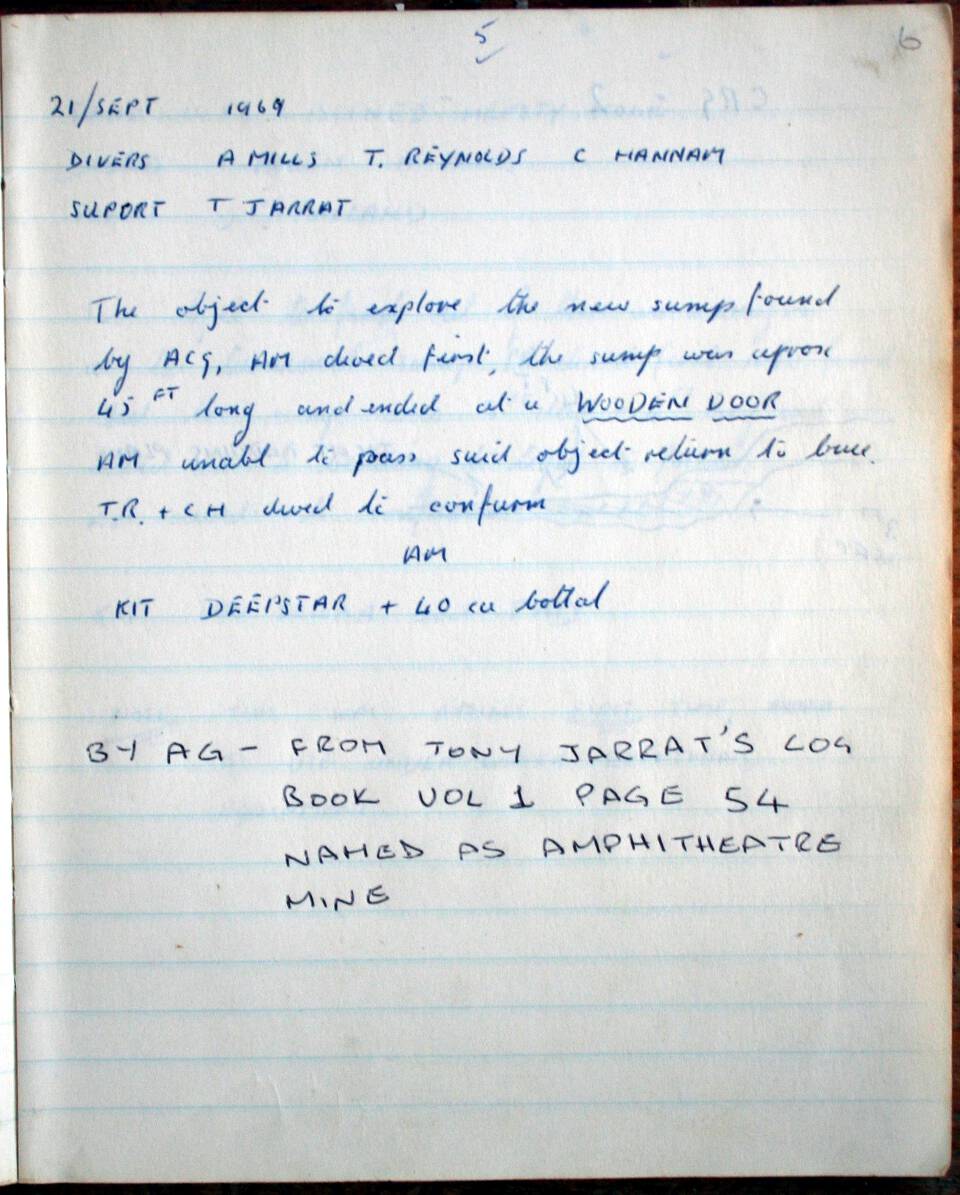 5
6
21/SEPT 1969
DIVERS A MILLS T. REYNOLDS C HANNAM
SUPORT T JARRAT
The object to explore the new sump found
by ACG, AM dived first, the sump was aprox
45 FT long and ended at a WOODEN DOOR
AM unabl to pass said object return to base.
T.R. + CH dived to confurm
AM
KIT DEEPSTAR + 40 cu bottal
BY AG - FROM TONY JARRAT'S LOG
BOOK VOL 1 PAGE 54
NAMED AS AMPHITHEATRE
MINE